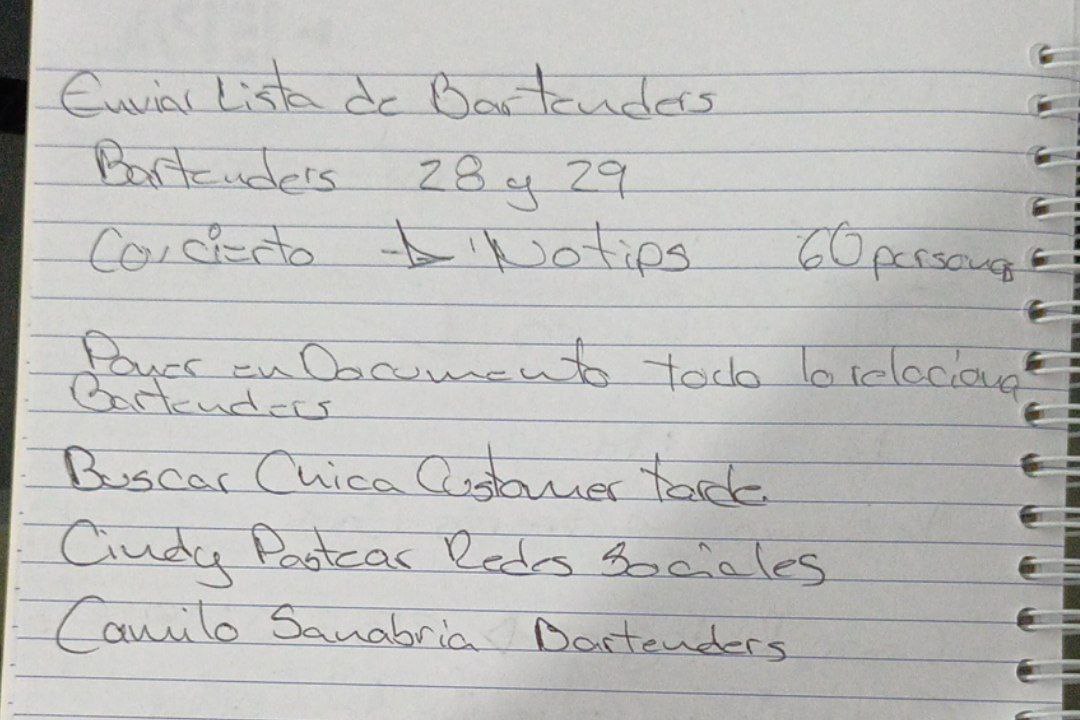 Enviar Lista de Bartenders
Bartenders 28 y 29
Concierto → No tips 60 personas
Poner en Documento todo lo relaciona
Bartenders
Buscar Chica Customer tarde.
Cindy Postear Redes Sociales
Camilo Sanabria Bartenders